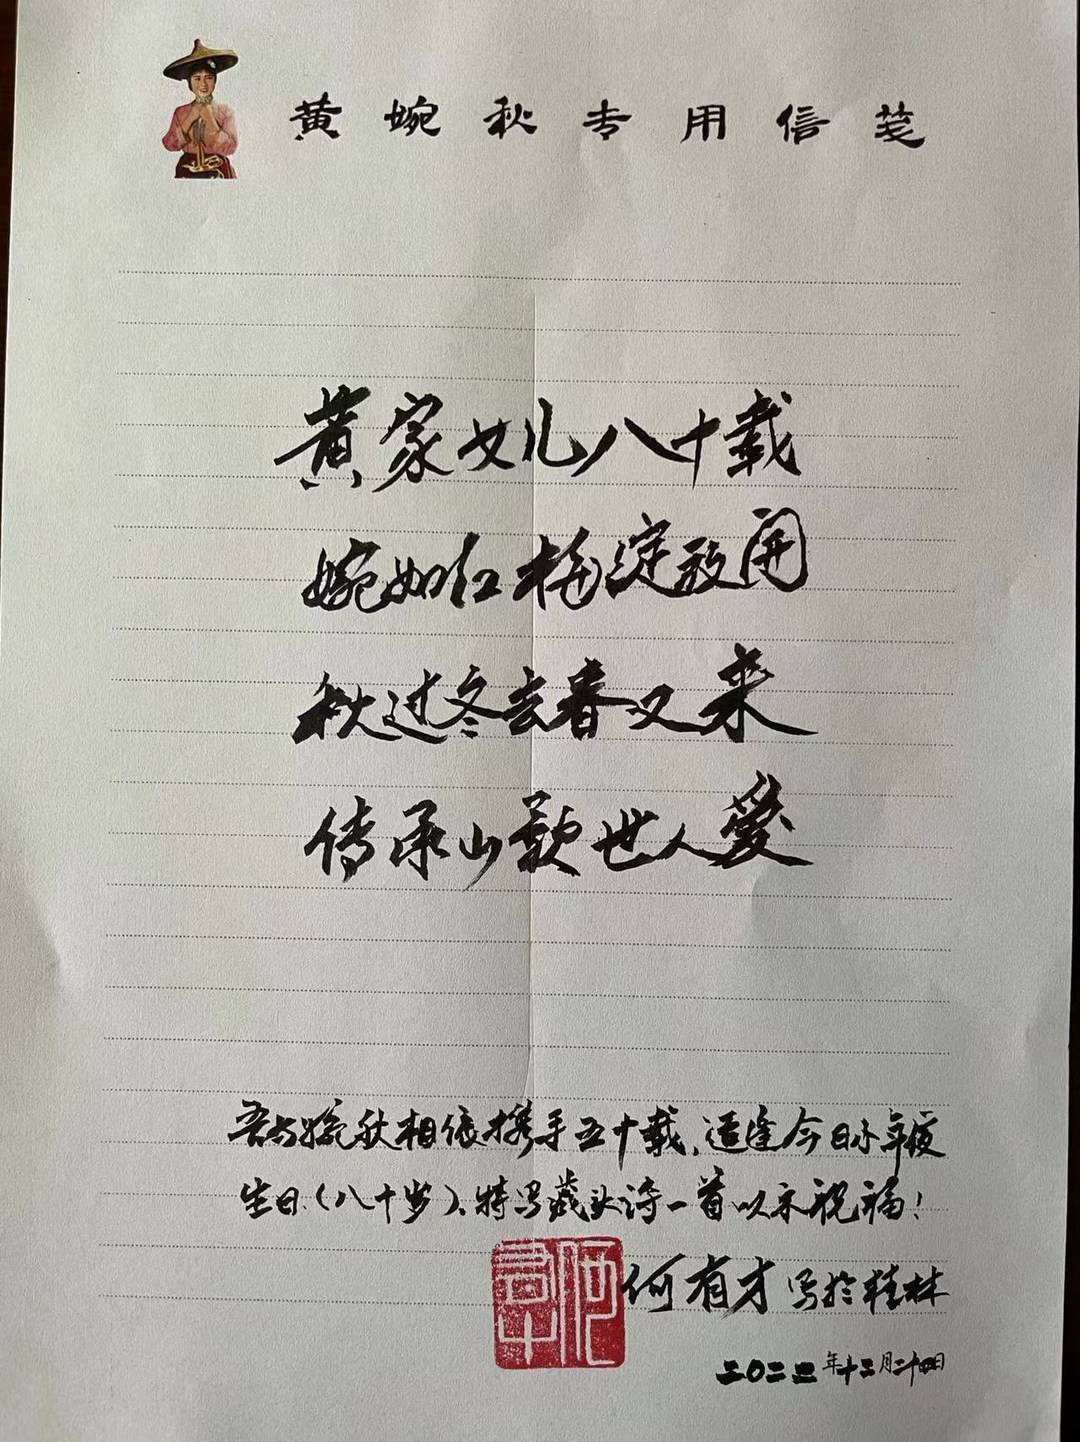 黄婉秋专用信笺
黄家女儿八十载
婉如红梅绽放开
秋过冬去春又来
传承山歌世人爱
吾与婉秋相依携手五十载、适逢今日小年夜
生日(八十岁)、特写藏头诗一首以示祝福!
何有才写于桂林
二〇二二年十二月二十四日